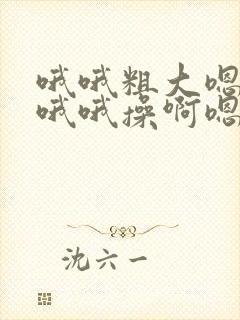 哦哦粗大嗯
哦哦操啊嗯
沈六一